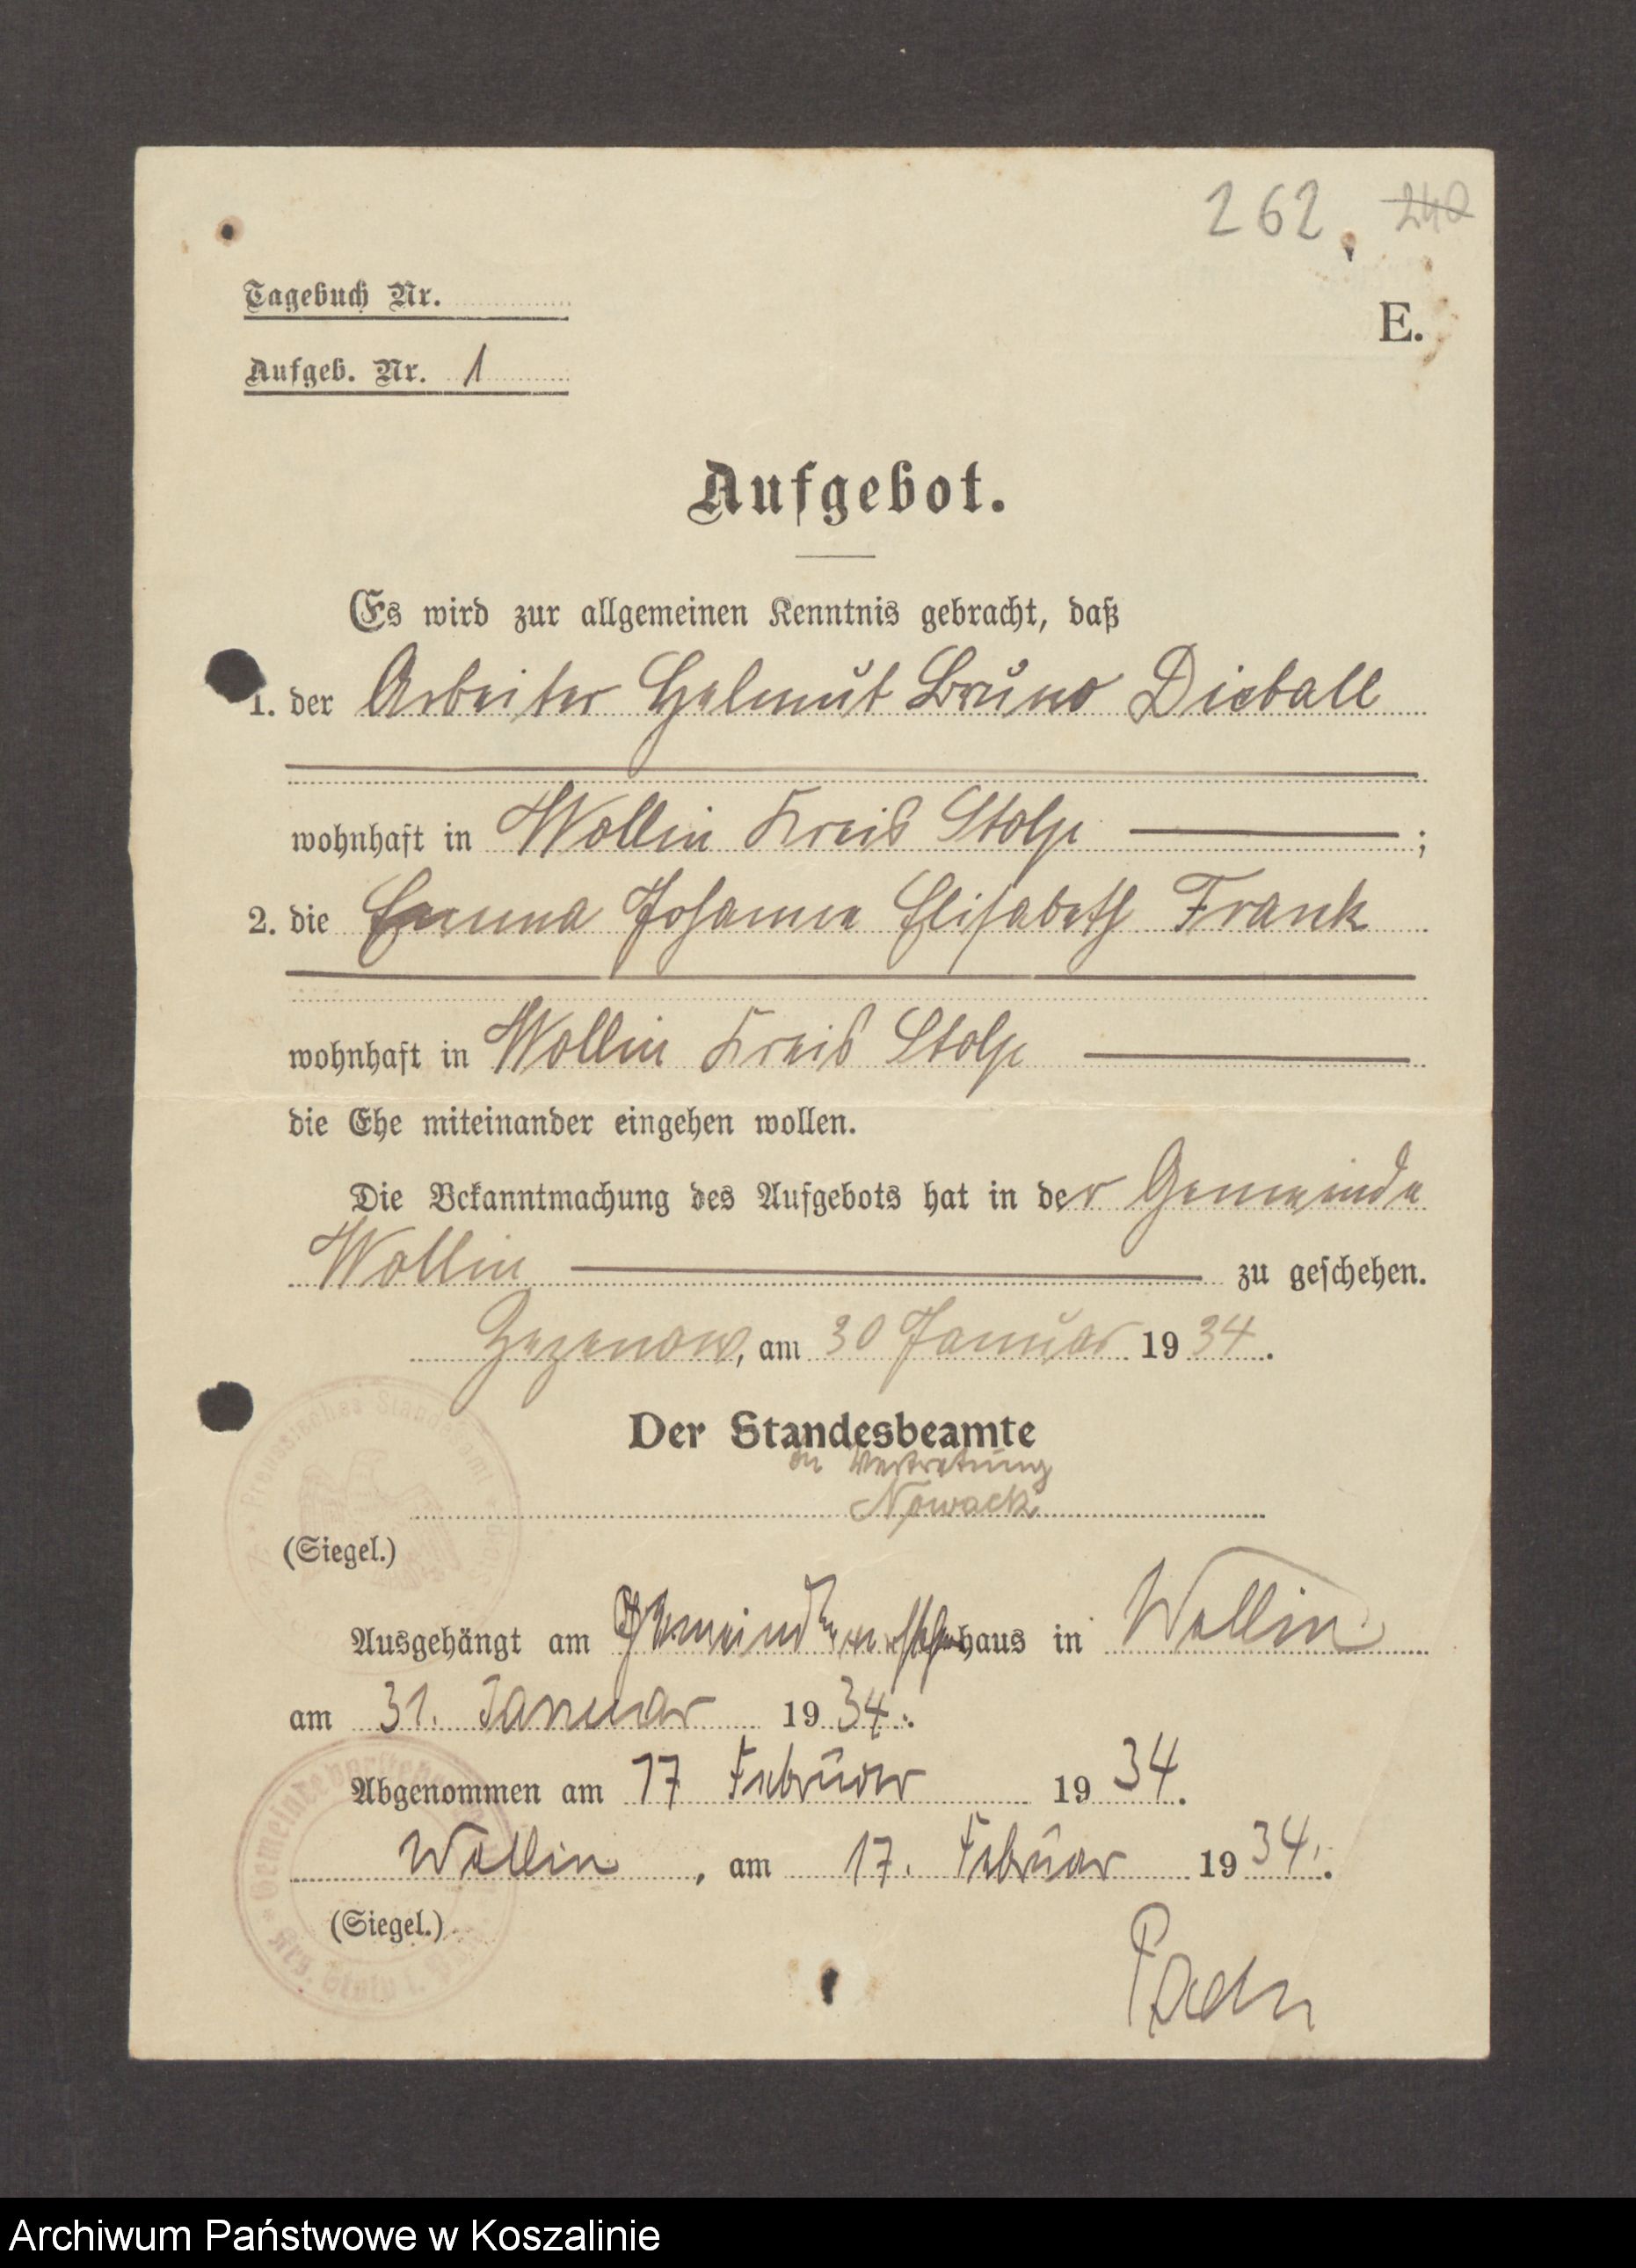 262. 240
Tagebuch Nr.
E.
Aufgeb. Nr. 1
Aufgebot.
Es wird zur allgemeinen Kenntnis gebracht, daß
1. der Arbeiter Helmut Bruno Dieball
wohnhaft in Wollin Kreis Stolp ;
2. die Emma Johanne Elisabeth Frank
wohnhaft in Wollin Kreis Stolp
die Ehe miteinander eingehen wollen.
Die Bekanntmachung des Aufgebots hat in der Gemeinde
Wollin zu geschehen.
Zezenow, am 30 Januar 1934.
Der Standesbeamte
In Vertretung
Nowack
Preussisches Standesamt
(Siegel.)
Ausgehängt am haus in Wollin
am 31. Januar 1934.
Abgenommen am 17 Februar 1934.
Wollin, am 17. Februar 1934.
(Siegel.)
Krs. Stolp i.
Archiwum Państwowe w Koszalinie